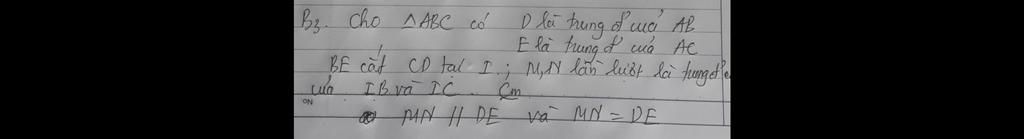 B3. Cho △ABC có D là trung đ' của AB
E là trung đ' của AC
BE cắt CD tại I.; M,N lần lượt là trung đ'
của IB và IC. Cm
MN // DE và MN = DE